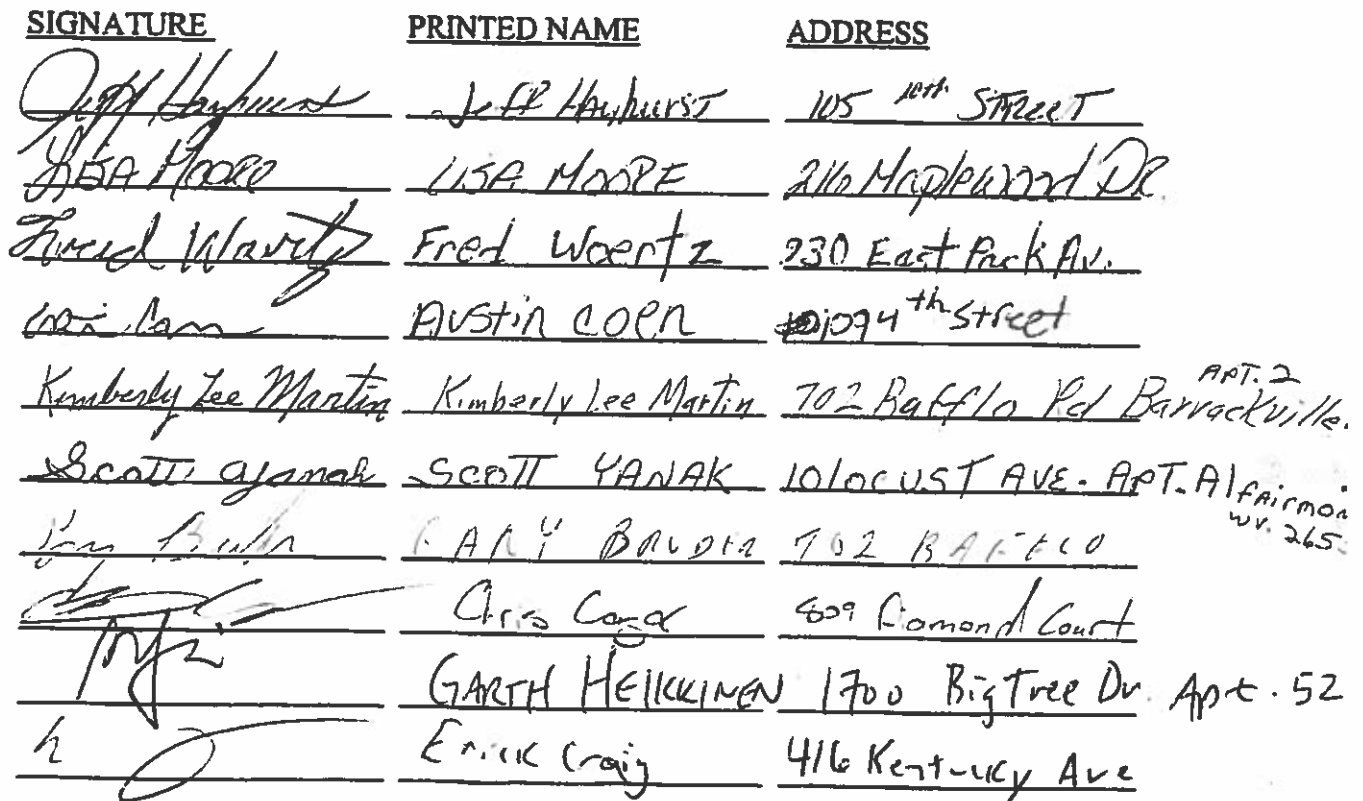 SIGNATURE PRINTED NAME ADDRESS
Jeff Hayhurst Jeff Hayhurst 105 10th STREET
LISA MOORE LISA MOORE 216 Maplewood DR.
Fred Woertz Fred Woertz 930 East Park Av.
AUSTIN COEN 1094th Street
Kimberly Lee Martin Kimberly Lee Martin 702 Bafflo Rd Barrackville. APT. 2
Scott Yanak SCOTT YANAK 10 locUST AVE. APT. A1 fairmon
WV. 265
GARY 702 BAFFLO
Chris 809 Court
GARTH HEIKKINEN 1700 Big Tree Dr. Apt. 52
Erick Craig 416 Kentucky Ave